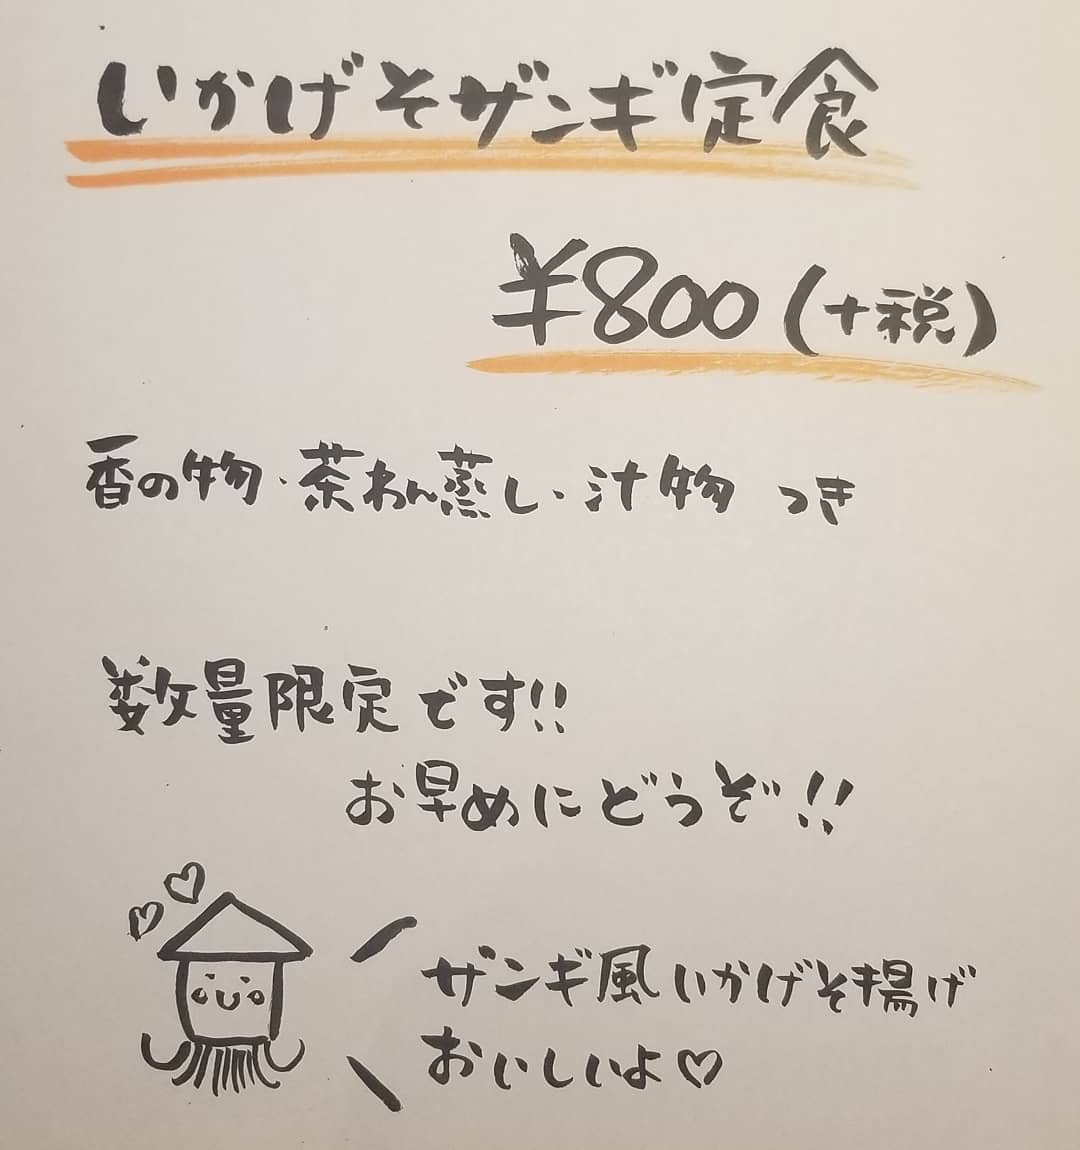 いかげそザンギ定食
¥800(+税)
香の物・茶わん蒸し・汁物 つき
数量限定です!!
お早めにどうぞ!!
ザンギ風いかげそ揚げ
おいしいよ♡